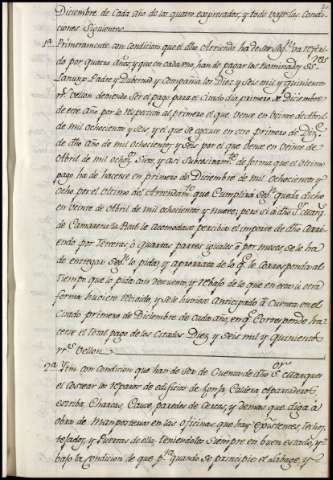 Diciembre de Cada año de los quatro expresados, y todo vajo las Condi-
ciones Siguientes
1ª. Primeramente con Condicion que el dho Arriendo ha de ser
por quatro Años, y que en cada uno, han de pagar los Nominados SS.res
Padre y Compañia los Diez y Seis mil y quinientos
r.s Vellon deviendo Ser el pago para el Citado dia primero de Diciembre
de este Año por lo respectivo al primero el que vence en Veinte de Abril
de mil ochocientos y Seis y el que Se execute en otro primero de Dic.re
de dho año de mil ochocientos y Seis por el que vence en Veinte de
Abril de mil ochoz.s Siete; y asi Subcesivam.te de forma que el ultimo
pago ha de hacerse en primero de Diciembre de mil ochocientos y
ocho por el ultimo del Arrendam.to que Cumplirá Seg.n queda dicho
en Veinte de Abril de mil ochocientos y nueve; pero si a dho S.r
de Camarena la Real le Acomodare percibir el importe de dho Arri-
endo por Tercias, ó quartas partes iguales ó por meses se le ha
de entregar Seg.n lo pida; y a prorrata de lo q.e le Corresponda al
tiempo que lo pida sin descuento, y rebajo de lo que en esta ú otra
forma huviere recivido, y se le huviese Anticipado á Cuenta en el
Citado primero de Diciembre de Cada año, en q.e Corresponde ha-
cerse el total pago de los Citados Diez y Seis mil y quinientos
r.s Vellon
2ª. Y con Condicion que han de Ser de Cuenta de dho S.or
el Costear los reparos de edificios de
Cauce, paredes de Cercas, y demas que diga á
obra de Manposteria en las oficinas que hay existentes, Techos,
tejados, y Puertas de ellas teniendolas Siempre en buen estado, y
bajo la Condicion de que p.a quando Se principie el , y